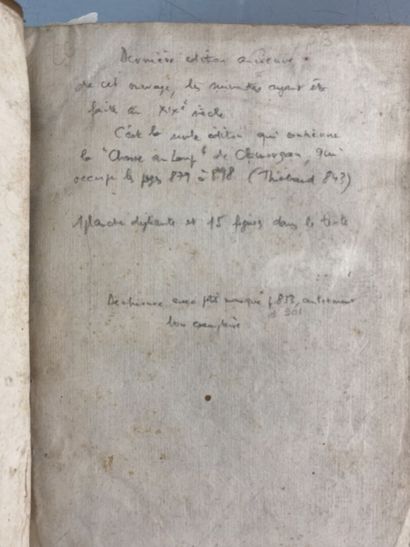 Dernière édition ancienne
de cet ouvrage, les suivantes ayant été
faite au XIXè siècle
C'est la seule édition qui contienne
la "Chasse au Loup" de Clamorgan, qui
occupe les pages 879 à 898 (Thiébaud 843)
1 planche dépliante et 15 figures dans le texte
Déchirure avec pte manque p. 853, autrement
bon exemplaire